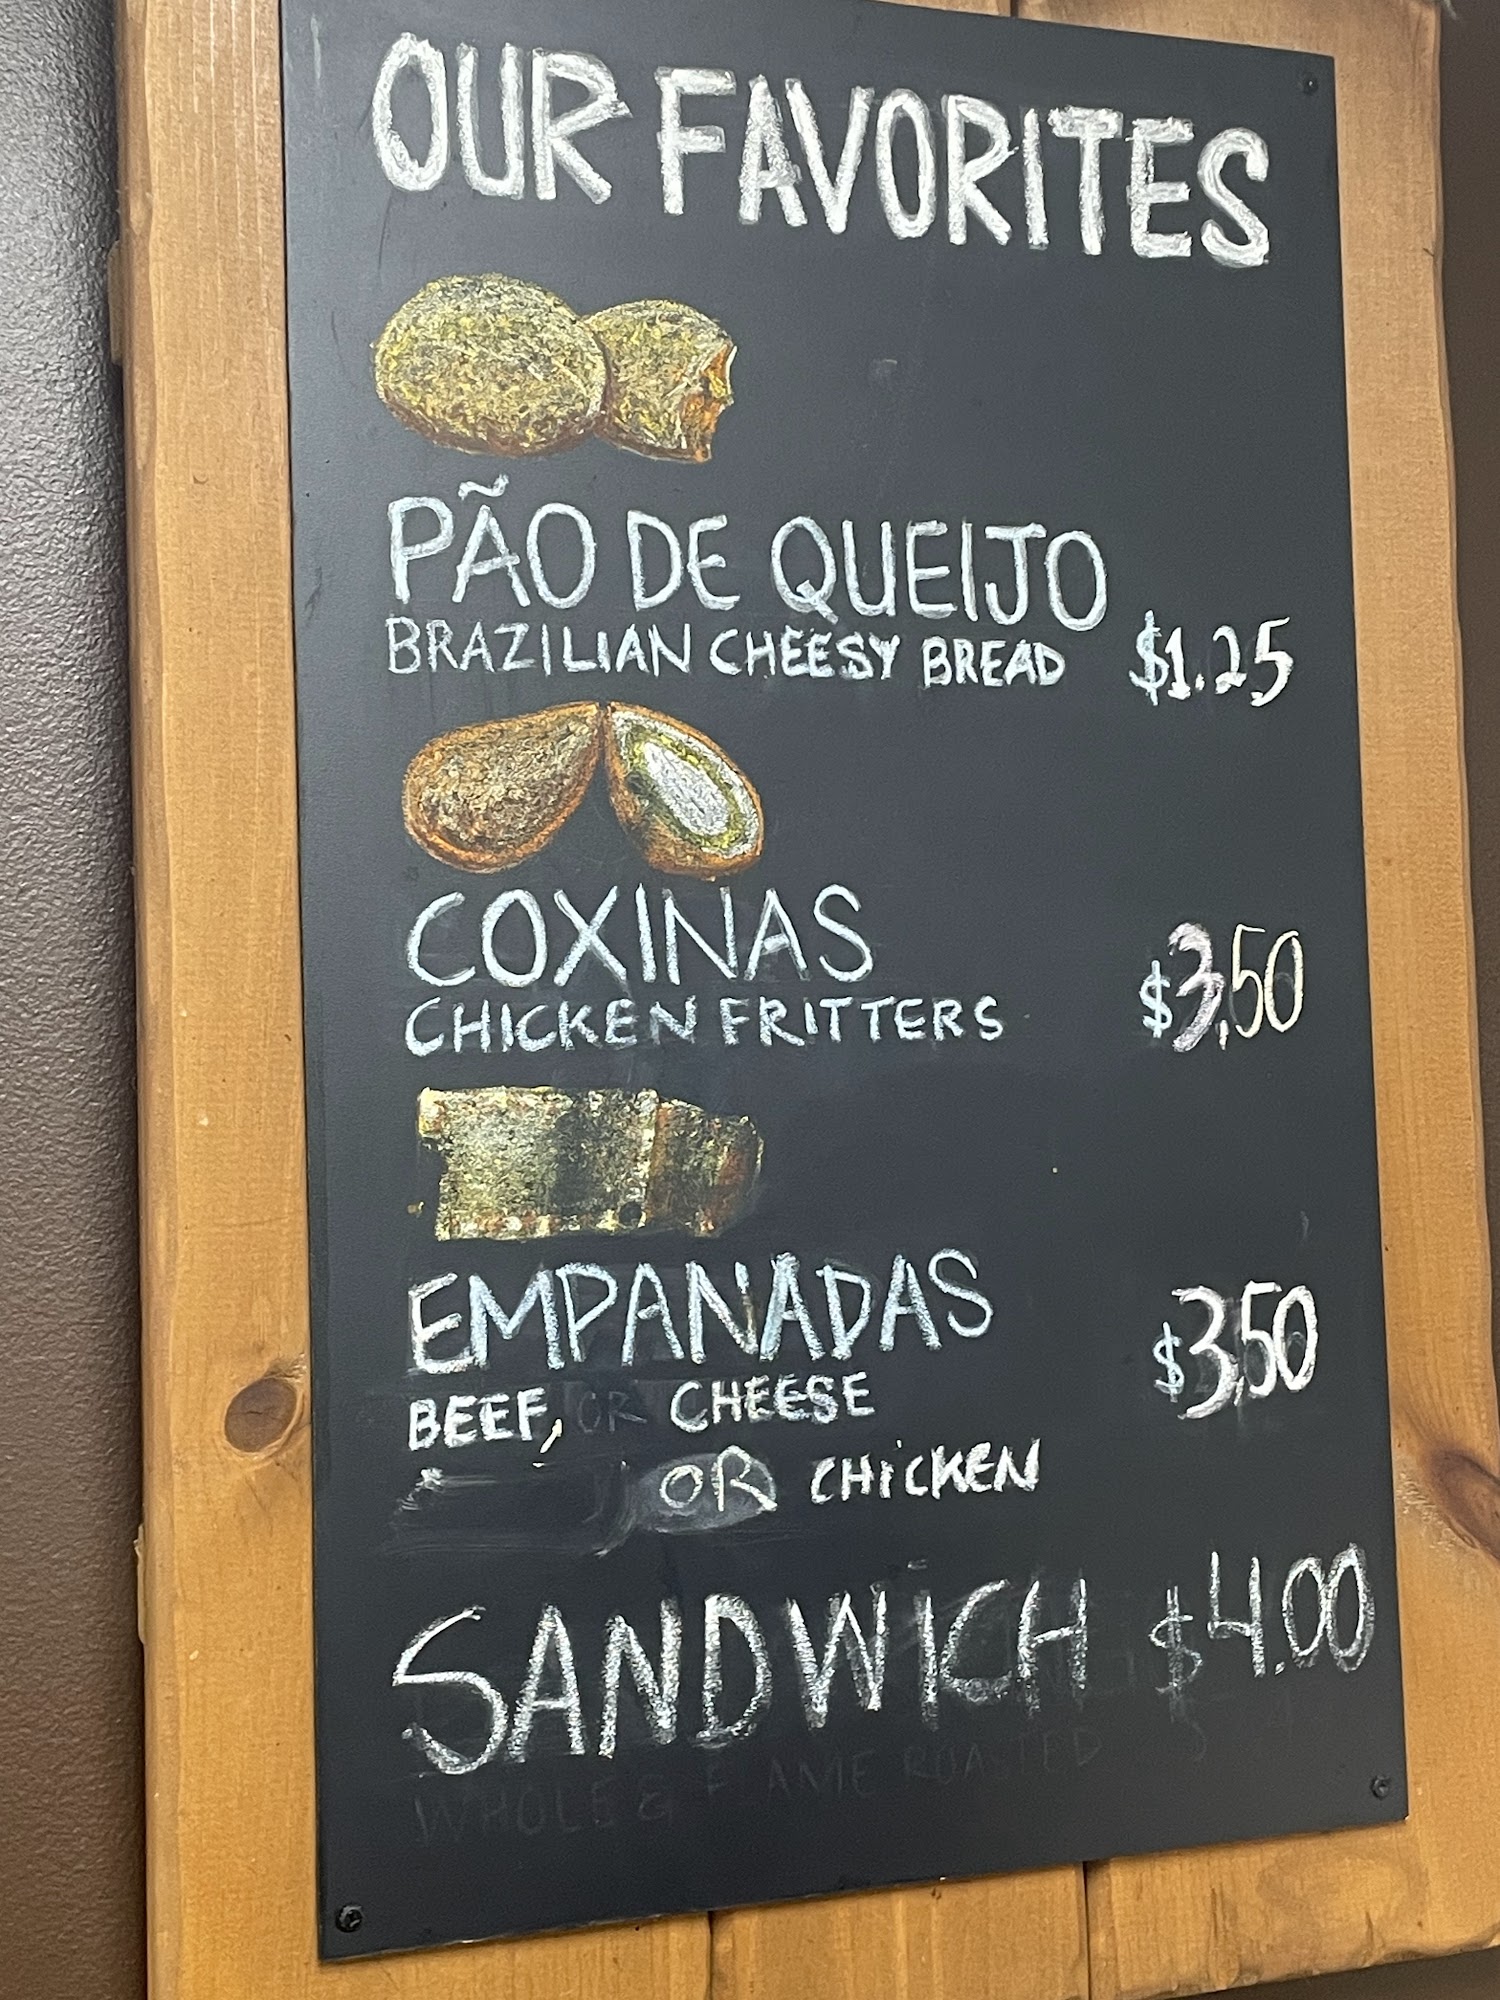 OUR FAVORITES
PÃO DE QUEIJO
BRAZILIAN CHEESY BREAD $1.25
COXINAS
CHICKEN FRITTERS $3,50
EMPANADAS
BEEF, OR CHEESE $3,50
OR CHiCKEN
SANDWiCH $4.00
WHOLE & FLAME ROASTED